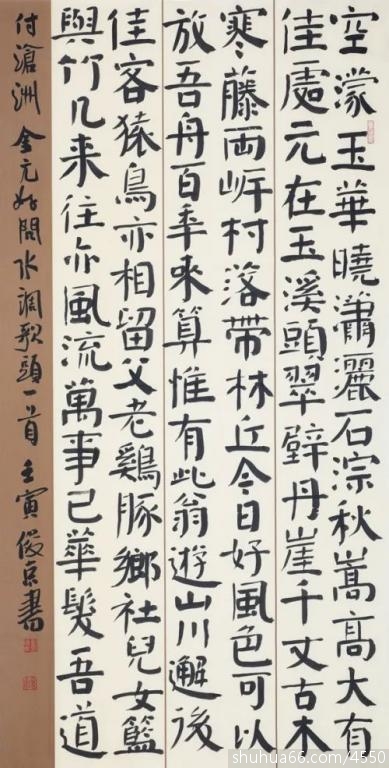 空濛玉華曉瀟灑石淙秋嵩高大有
佳處元在玉溪頭翠壁丹崖千丈古木
寒藤兩岸村落帶林丘今日好風色可以
放吾舟百年來算惟有此翁遊山川邂後
佳客猿鳥亦相留父老雞豚鄉社兒女籃
與竹几来往亦風流萬事已華髮吾道
付滄洲 金元好問水調歌頭一首 壬寅俊京書
shuhua66.com/4550